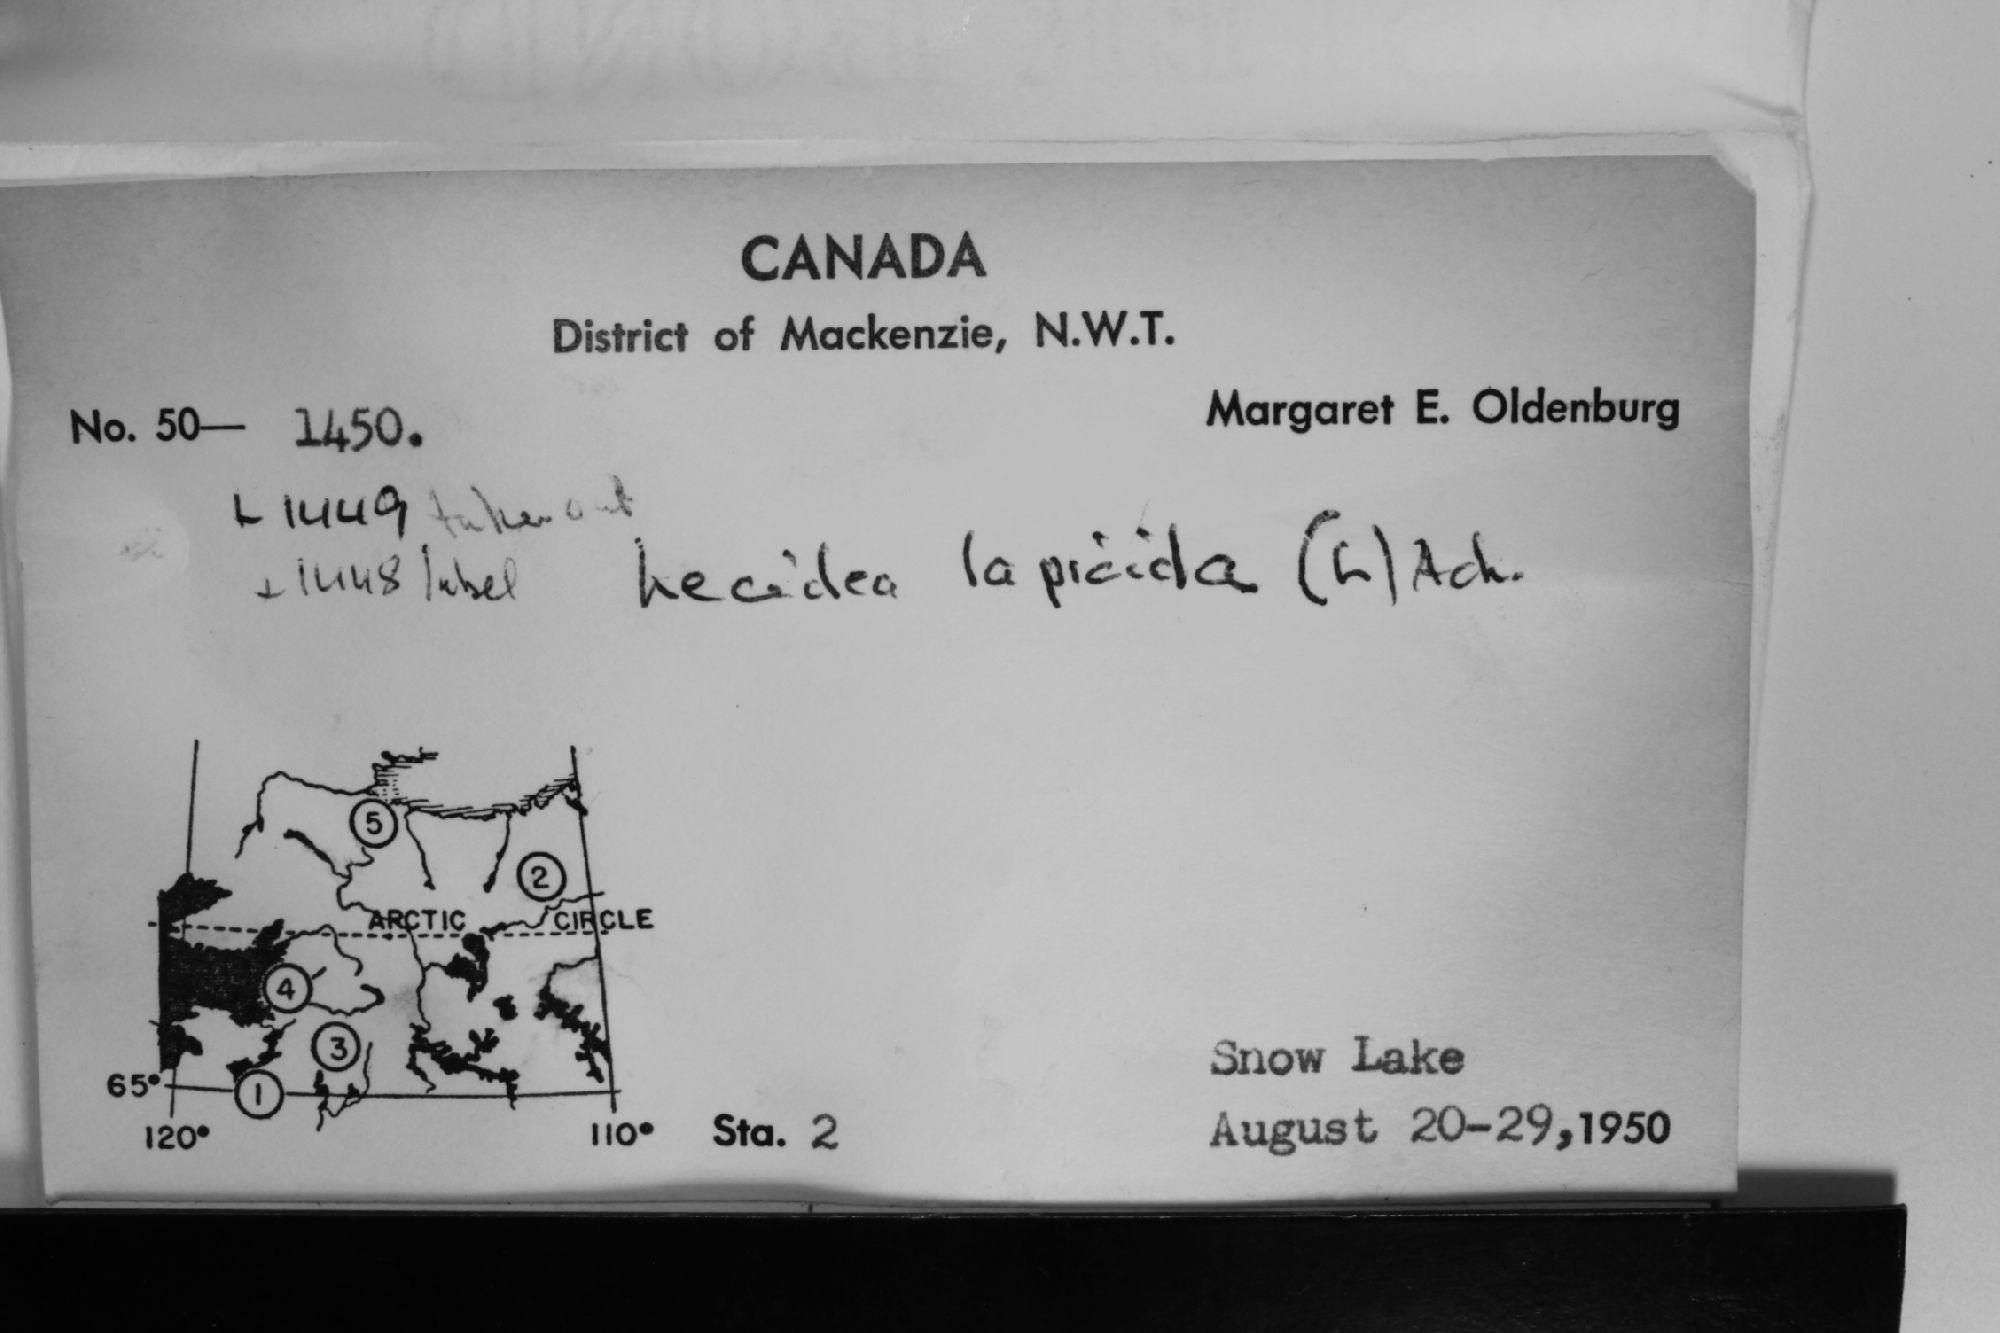 CANADA
District of Mackenzie, N.W.T.
No. 50— 1450.
Margaret E. Oldenburg
+ 1449 taken out
+ 1448 label
Lecidea lapicida (L) Ach.
5
2
ARCTIC CIRCLE
4
3
65°
1
120°
110°
Sta. 2
Snow Lake
August 20-29, 1950